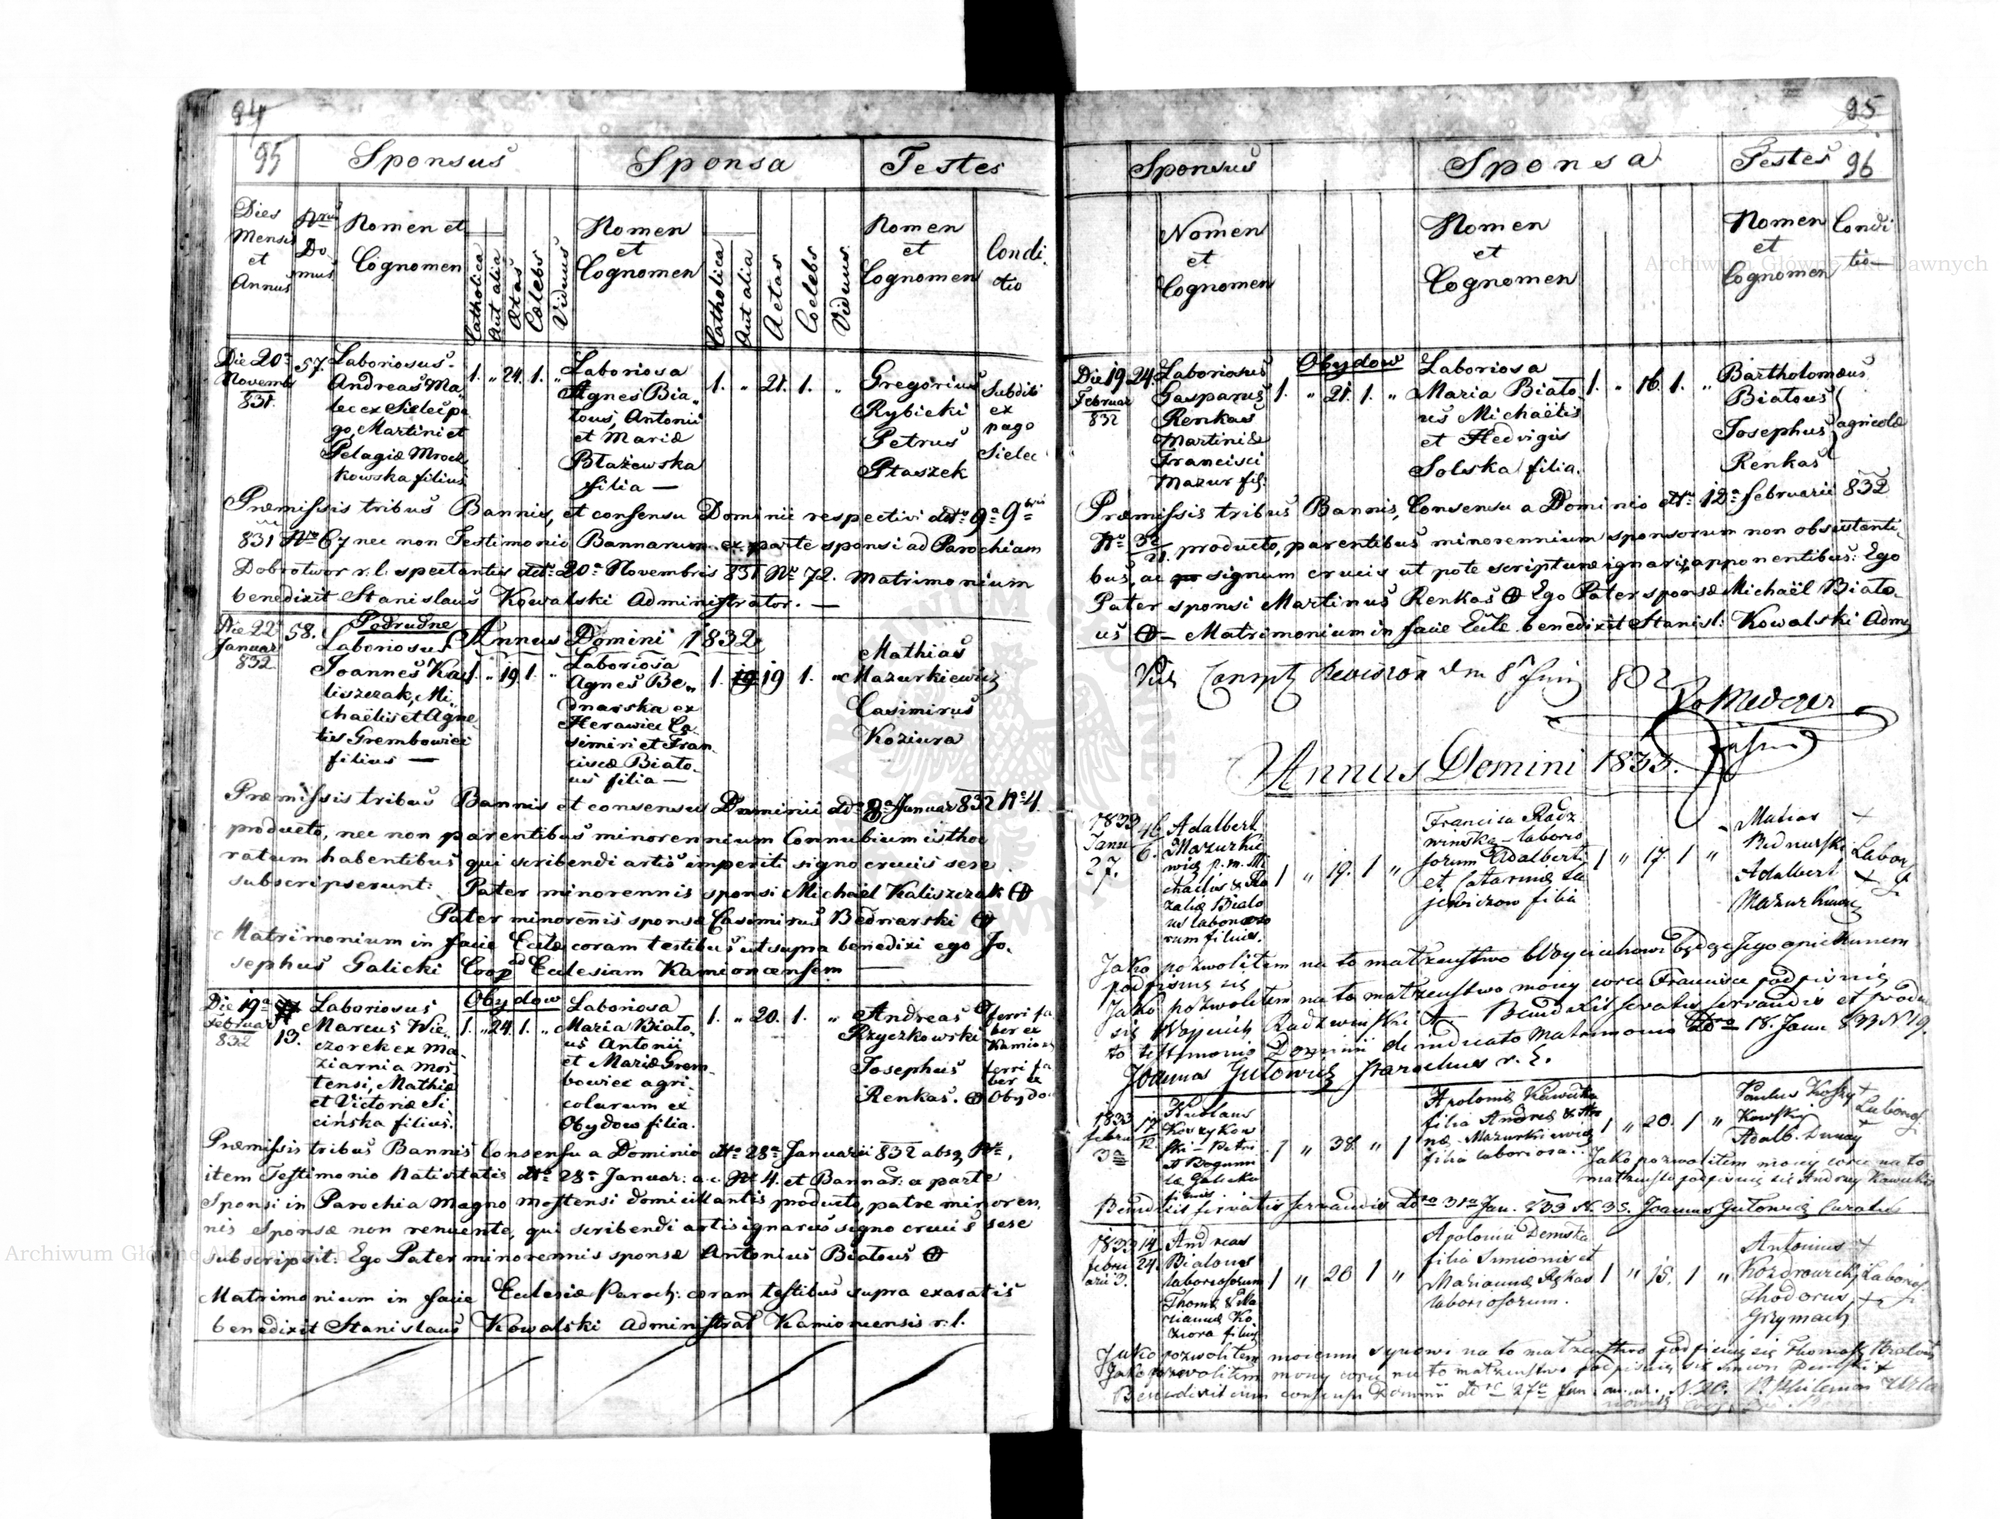 94
95
Sponsus Sponsa Testes
Dies Mensis et Annus
Nrus Domus
Nomen et Cognomen
Catholica
Aut alia
Aetas
Coelebs
Viduus
Nomen et Cognomen
Catholica
Aut alia
Aetas
Coelebs
Viduus
Nomen et Cognomen
Conditio
Die 20a
Novembr
831
57.
Laboriosus
Andreas Ma
lec ex Sielec pa
go, Martini et
Pelagiæ Mrocz
kowska filius
1. „ 24. 1. „
Laboriosa
Agnes Bia„
lous, Antonii
et Mariæ
Błażewska
filia —
1. „ 21. 1. „
Gregorius
Rybicki
Petrus
Ptaszek
Subditi
ex
pago
Sielec
Præmissis tribus Bannis, et consensu Dominii respectivi ddto 9a 9bris
831 Nro 67 nec non Testimonio Bannorum ex parte sponsi ad Parochiam
Dobrotwor r.l. spectantis ddto 20a Novembris 831 Nro 72. Matrimonium
benedixit Stanislaus Kowalski Administrator. —
Podrudne
Annus Domini 1832
Die 22
Januar
832
58.
Laboriosus
Joannes Ka
liszczak, Mi
chaëlis et Agne
tis Grembowiec
filius —
1. „ 19. 1. „
Laboriosa
Agnes Be„
dnarska ex
Ca
simiri et Fran
ciscæ Biało
us filia —
1. 19 1. „
Mathias
Mazurkiewicz
Casimirus
Koziura
Præmissis tribus Bannis et consensu Dominii ddo 8a Januar 832 No 4.
producto, nec non parentibus minorennium Connubium isthoc
ratum habentibus qui scribendi artis imperiti signo crucis sese
subscripserunt: Pater minorennis sponsi Michaël Kaliszczak
Pater minorennis sponsæ Casimirus Bednarski
Matrimonium in facie Eccle coram testibus ut supra benedixi ego Jo.
sephus Galicki Coop ad Ecclesiam Kamioncensem —
Obydow
Die 19a
Februar
832
13.
Laboriosus
Marcus Wie
czorek ex Ma
ziarnia Mos
tensi, Mathiæ
et Victoriæ Si
cińska filius.
1. „ 24. 1. „
Laboriosa
Maria Biało„
us Antonii
et Mariæ Grem
bowiec agri
colarum ex
Obydow filia.
1. „ 20. 1. „
Andreas
Ryczkowski
Josephus
Renkas.
ferri fa
ber ex
Kamion
ferri fa
ber ex
Obydo
Præmissis tribus Bannis Consensu a Dominio ddto 28a Januarii 832 absq Nro,
item Testimonio Nativitatis ddto 28a Januar: a.c. Nro 4. et Bannar: a parte
Sponsi in Parochia Magno Mostensi domicillantis producto, patre minoren„
nis Sponsæ non renuente, qui scribendi artis ignarus signo crucis sese
subscripsit: Ego Pater minorennis sponsæ Antonius Białous
Matrimonium in facie Ecclesiæ Paroch: coram testibus supra exaratis
benedixit Stanislaus Kowalski Administrat Kamioncensis r.l.
95
96
Sponsus Sponsa Testes
Nomen et Cognomen
Nomen et Cognomen
Nomen et Cognomen
Conditio
Obydow
Die 19
Februar
832
24
Laboriosus
Gasparus
Renkas
Martini &
Francisci
Mazur fil:
1. „ 21. 1. „
Laboriosa
Maria Biało
us Michaëlis
et Hedvigis
Solska filia.
1. „ 16. 1. „
Bartholomæus
Białous
Josephus
Renkas
agricolæ
Præmissis tribus Bannis, Consensu a Dominio ddto 12a februarii 832
Nro producto, parentibus minorennium sponsorum non obsistenti„
bus, ac signum crucis ut pote scripturæ ignaris, apponentibus: Ego
Pater sponsi Martinus Renkas Ego Pater sponsæ Michaël Biało„
us — Matrimonium in facie Eccle benedixit Stanisl: Kowalski Adm
832
Annus Domini 1833.
1833
Janu
27.
46
6.
Adalbert
Mazurkie
wicz p.m. Mi
chaelis & Ro
zaliæ Biało
us laborioso
rum filius.
1 „ 19. 1 „
Francisca Radz
winska — laborio
sorum Adalberti
et Catarinæ
filia
1 „ 17. 1 „
Matias
Bednarski
Adalbert
Mazurkiewicz
Labor
Jako pozwolitem na to matzenstwo Woyciechowi będąc Jego opiekunem
podpisuię się
Jako pozwolitem na to matzenstwo moiey corce Francisce podpisuię
się Woyciech Radzwinski Benedixit servatis servandis et produ
to testimonio Dominii de indicato Matrimonio ddto 18. Janu 833 N 19.
Joannes Gutowicz Parochus r. l.
1833
febru
3a
17
12
Nicolaus
Kurzykow
ski — Petri
et Bogumi
læ Galicka
filius
1 „ 38. „ 1
Apolonia Kawecka
filia Andreæ & An
næ Mazurkiewicz
filia laboriosa.
1 „ 20. 1 „
Paulus
Kowsky
Adalb. Dunay
Laborios
Jako pozwolitem moiey corce na to
matzenstwo podpisuię się Andrzey Kawecki
Benedixit servatis servandis ddto 31a Jan. 833 N. 35. Joannes Gutowicz Curatus
1833
febru
arii 3.
14
24.
Andreas
Bialous
laboriosorum
Thomæ & Ma
rianna Ko
ziora filius
1 „ 20 1 „
Apolonia Demska
filia Simionis et
Mariannæ Rękas
laboriosorum.
1 „ 15. 1 „
Antonius
Thodorus
Grzymach
Laborios
Jako pozwolitem moiemu synowi na to matzenstwo podpisuię się Thomasz Bialous
Jako pozwolitem moiey corce na to matzenstwo podpisuię się Simon Demski
Benedixit cum consensu Dominii ddto 27a Jan N. 20.
Archiwum Główne Akt Dawnych
Archiwum Główne Akt Dawnych